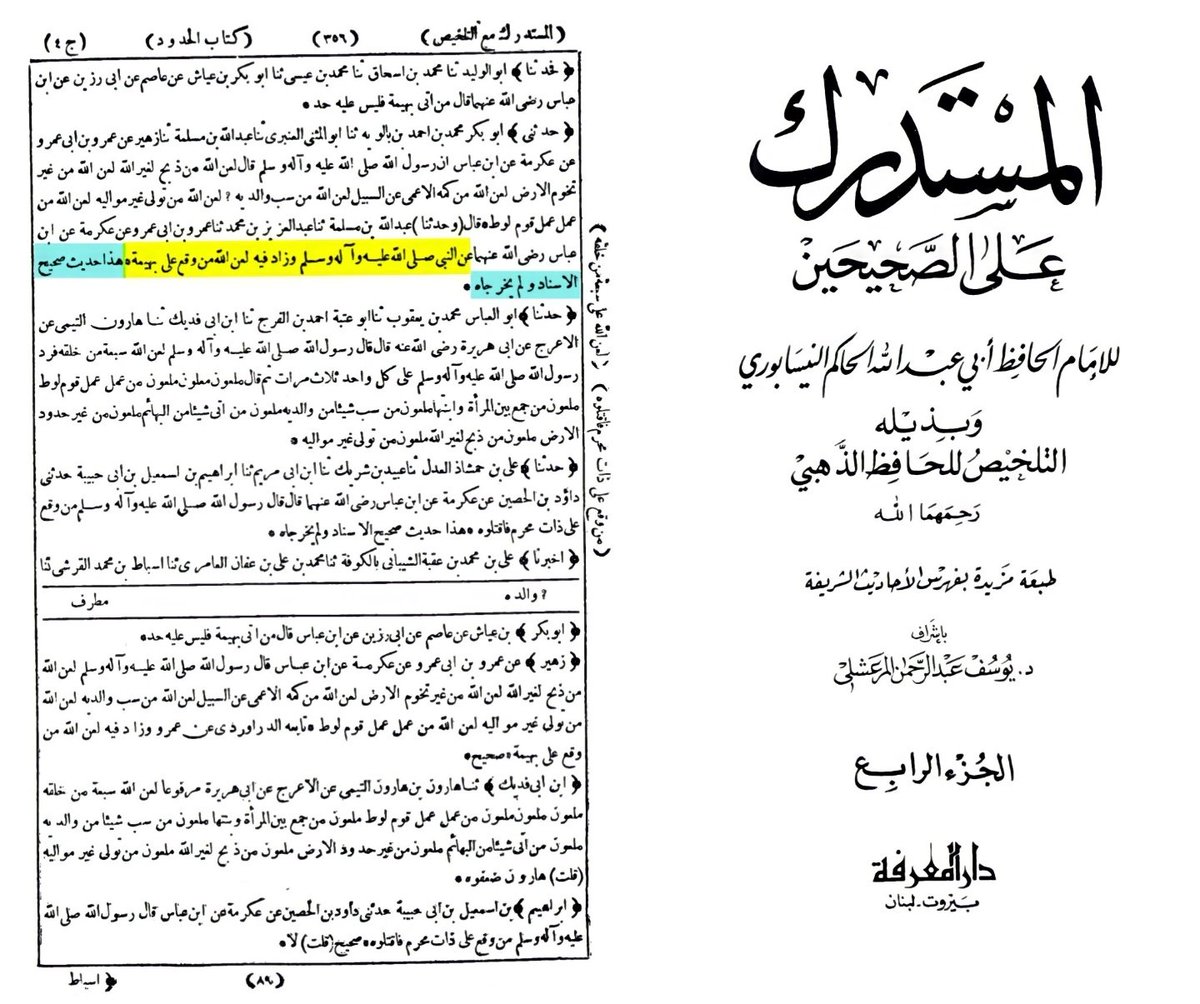 (المستدرك مع التلخيص) (٣٥٦) (كتاب الحدود) (ج ٤)
﴿ فحدثنا ﴾ ابو الوليد ثنا محمد بن اسحاق ثنا محمد بن عيسى ثنا ابو بكر بن عياش عن عاصم عن ابى رزين عن ابن
عباس رضى الله عنهما قال من اتى بهيمة فليس عليه حد •
﴿ حدثنى ﴾ ابو بكر محمد بن احمد بن بالويه ثنا ابو المثنى العنبرى ثنا عبد الله بن مسلمة ثنا زهير عن عمرو بن ابى عمرو
عن عكرمة عن ابن عباس ان رسول الله صلى الله عليه وآله وسلم قال لعن الله من ذبح لغير الله لعن الله من غير
تخوم الارض لعن الله من كمه الاعمى عن السبيل لعن الله من سب والديه ? لعن الله من تولى غير مواليه لعن الله من
عمل عمل قوم لوط • قال (وحدثنا) عبد الله بن مسلمة ثنا عبد العزيز بن محمد ثنا عمرو بن ابى عمرو عن عكرمة عن ابن
عباس رضى الله عنهما عن النبى صلى الله عليه وآله وسلم وزاد فيه لعن الله من وقع على بهيمة • هذا حديث صحيح
الاسناد ولم يخرجاه •
﴿ حدثنا ﴾ ابو العباس محمد بن يعقوب ثنا ابو عتبة احمد بن الفرج ثنا ابن ابى فديك ثنا هارون التيمى عن
الاعرج عن ابى هريرة رضى الله عنه قال قال رسول الله صلى الله عليه وآله وسلم لعن الله سبعة من خلقه فرد
رسول الله صلى الله عليه وآله وسلم على كل واحد ثلاث مرات ثم قال ملعون ملعون ملعون من عمل عمل قوم لوط
ملعون من جمع بين المرأة وابنتها ملعون من سب شيئا من والديه ملعون من اتى شيئا من البهائم ملعون من غير حدود
الارض ملعون من ذبح لغير الله ملعون من تولى غير مواليه •
﴿ حدثنا ﴾ على بن حمشاذ العدل ثنا عبيد بن شريك ثنا ابن ابى مريم ثنا ابراهيم بن اسمعيل بن ابى حبيبة حدثنى
داؤد بن الحصين عن عكرمة عن ابن عباس رضى الله عنهما قال قال رسول الله صلى الله عليه وآله وسلم من وقع
على ذات محرم فاقتلوه • هذا حديث صحيح الاسناد ولم يخرجاه •
﴿ اخبرنا ﴾ على بن محمد بن عقبة الشيبانى بالكوفة ثنا محمد بن على بن عفان العامرى ثنا اسباط بن محمد القرشى ثنا
? والد • مطرف
﴿ ابو بكر ﴾ بن عياش عن عاصم عن ابى رزين عن ابن عباس قال من اتى بهيمة فليس عليه حد •
﴿ زهير ﴾ عن عمرو بن ابى عمرو عن عكرمة عن ابن عباس قال رسول الله صلى الله عليه وآله وسلم لعن الله
من ذبح لغير الله لعن الله من غير تخوم الارض لعن الله من كمه الاعمى عن السبيل لعن الله من سب والديه لعن الله
من تولى غير مواليه لعن الله من عمل عمل قوم لوط • تابعه الدراوردى عن عمرو وزاد فيه لعن الله من
وقع على بهيمة • صحيح •
﴿ ابن ابى فديك ﴾ ثنا هارون بن هارون التيمى عن الاعرج عن ابى هريرة مرفوعا لعن الله سبعة من خلقه
ملعون ملعون ملعون من عمل عمل قوم لوط ملعون من جمع بين المرأة وبنتها ملعون من سب شيئا من والديه
ملعون من اتى شيئا من البهائم ملعون من غير حدود الارض ملعون من ذبح لغير الله ملعون من تولى غير مواليه
(قلت) هارون ضعفوه •
﴿ ابراهيم ﴾ بن اسمعيل بن ابى حبيبة حدثنى داود بن الحصين عن عكرمة عن ابن عباس قال رسول الله صلى الله
عليه وآله وسلم من وقع على ذات محرم فاقتلوه • صحيح (قلت) لا •
(٨٩) ﴿ اسباط
(لعن الله على سبعة من خلقه)
(من وقع على ذات محرم فاقتلوه)
المستدرك
على الصحيحين
للإمام الحافظ أبي عبد الله الحاكم النيسابوري
وبذيله
التلخيص للحافظ الذهبي
رحمهما الله
طبعة مزيدة بفهرس الأحاديث الشريفة
بإشراف
د. يوسف عبد الرحمن المرعشلي
الجزء الرابع
دار المعرفة
بيروت - لبنان